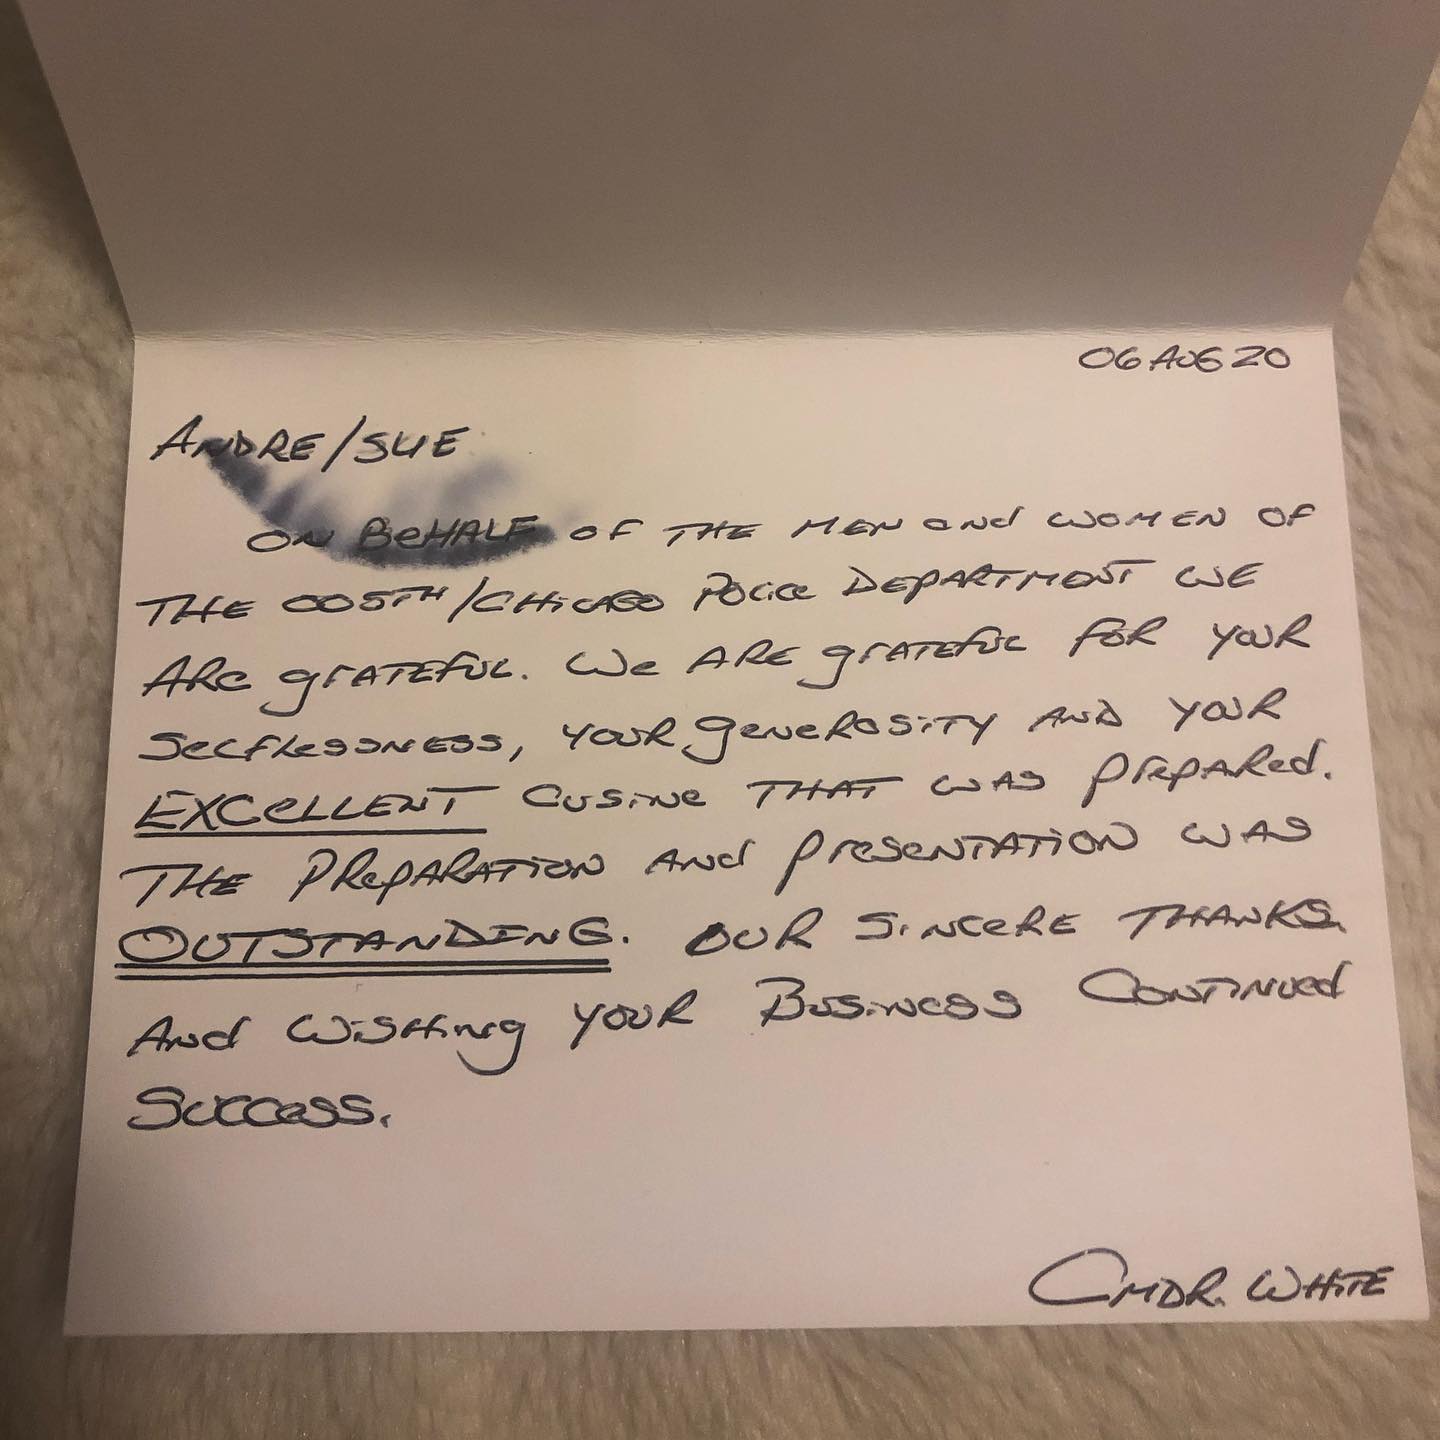 06 AUG 20
ANDRE/SUE
ON BEHALF OF THE MEN and WOMEN OF
THE 005TH/CHICAGO POLICE DEPARTMENT WE
ARE GRATEFUL. We ARE GRATEFUL FOR YOUR
SELFLESSNESS, YOUR GENEROSITY AND YOUR
EXCELLENT CUSINE THAT WAS PREPARED.
THE PREPARATION AND PRESENTATION WAS
OUTSTANDING. OUR SINCERE THANKS.
AND WISHING YOUR BUSINESS CONTINUED
SUCCESS.
CMDR. WHITE